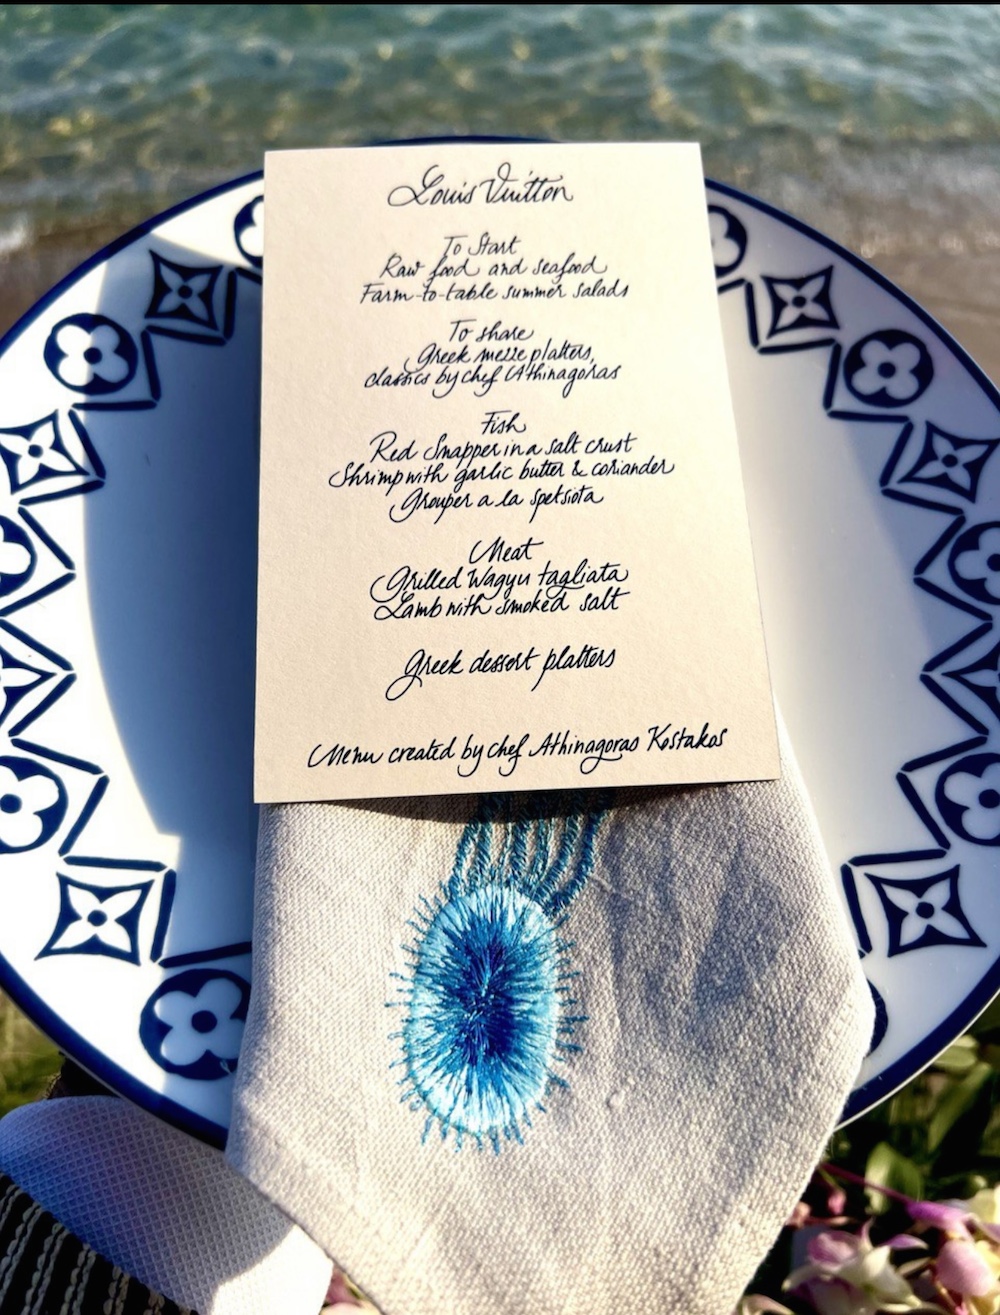 Louis Vuitton
To Start
Raw food and seafood
Farm-to-table summer salads
To share
Greek mezze platters,
classics by chef Athinagoras
Fish
Red Snapper in a salt crust
Shrimp with garlic butter & coriander
Grouper a la spetsiota
Meat
Grilled Wagyu tagliata
Lamb with smoked salt
Greek dessert platters
Menu created by chef Athinagoras Kostakos